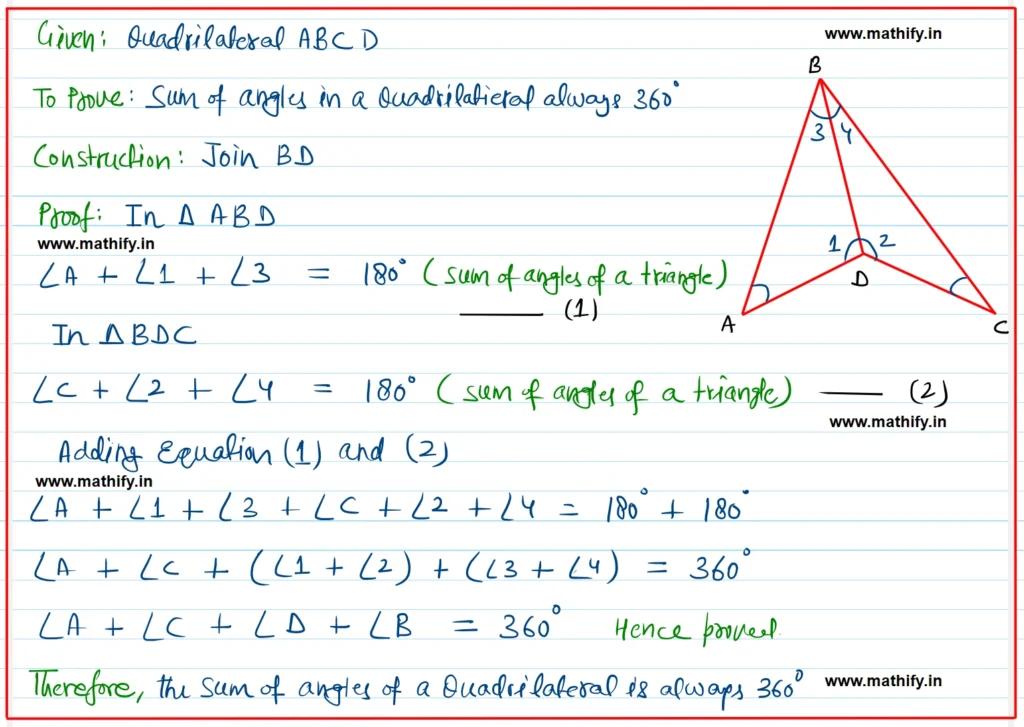 Given: Quadrilateral ABCD
www.mathify.in
To Prove: Sum of angles in a Quadrilatieral always 360°
Construction: Join BD
Proof: In Δ ABD
www.mathify.in
∠A + ∠1 + ∠3 = 180° (sum of angles of a triangle)
——— (1)
In ΔBDC
∠C + ∠2 + ∠4 = 180° (sum of angles of a triangle) ——— (2)
www.mathify.in
Adding Equation (1) and (2)
www.mathify.in
∠A + ∠1 + ∠3 + ∠C + ∠2 + ∠4 = 180° + 180°
∠A + ∠C + (∠1 + ∠2) + (∠3 + ∠4) = 360°
∠A + ∠C + ∠D + ∠B = 360° Hence proved.
Therefore, the sum of angles of a Quadrilateral is always 360°
www.mathify.in
B
3 4
1 2
D
A
C